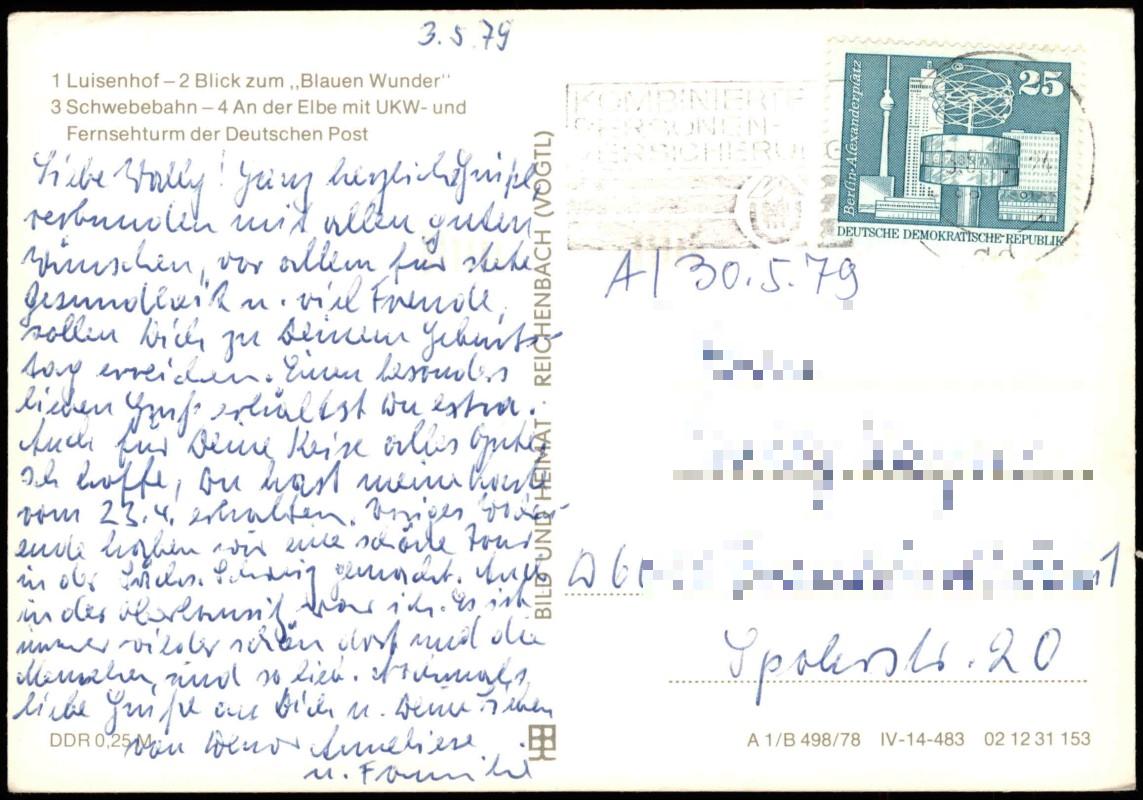 3.5.79
1 Luisenhof – 2 Blick zum „Blauen Wunder“
3 Schwebebahn – 4 An der Elbe mit UKW- und
Fernsehturm der Deutschen Post
Liebe Wally! Ganz herzliche Grüße,
verbunden mit allen guten
Wünschen, vor allem für stete
Gesundheit u. viel Freude,
sollen Dich zu Deinem Geburts-
tag erreichen. Einen besonders
lieben Gruß erhältst Du extra.
Auch für Deine Reise alles Gute.
Ich hoffe, Du hast meine Karte
vom 23.4. erhalten. Voriges Wochen-
ende haben wir eine schöne Tour
in der Sächs. Schweiz gemacht. Auch
in der Oberlausitz war ich. Es ist
immer wieder schön dort und die
Menschen sind so lieb. Nochmals
liebe Grüße an Dich u. Deine Lieben
von Deiner Anneliese
u. Familie
DDR 0,25 M
BILD UND HEIMAT · REICHENBACH (VOGTL)
KOMBINIERTE
PERSONEN-
VERSICHERUNG
25
Berlin-Alexanderplatz
DEUTSCHE DEMOKRATISCHE REPUBLIK
A/ 30.5.79
D 6
1
20
A 1/B 498/78 IV-14-483 02 12 31 153